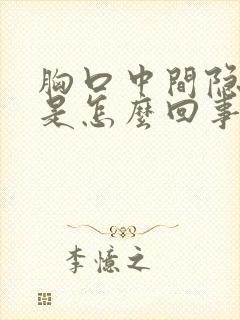 胸口中間隐
是怎麼回事
李憶之